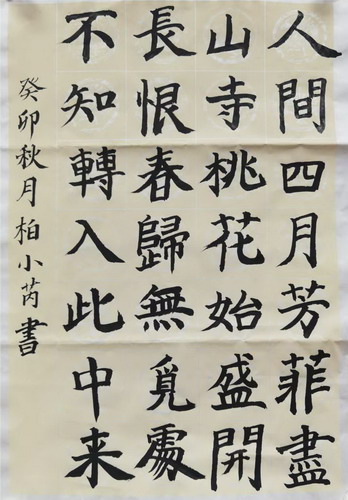 人間四月芳菲盡
山寺桃花始盛開
長恨春歸無覓處
不知轉入此中来
癸卯秋月柏小芮書